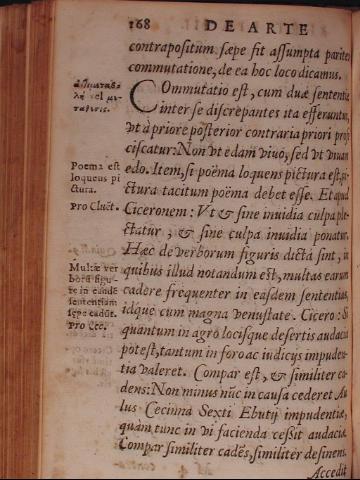 168 DE ARTE
contrapositum sæpe fit assumpta pariter
commutatione, de ea hoc loco dicamus.
COmmutatio est, cum duæ sententiæ
inter se discrepantes ita efferuntur,
vt à priore posterior contraria priori profi
ciscatur: Non vt edam viuo, sed vt viuam
edo. Item, si poëma loquens pictura est, pi-
ctura tacitum poëma debet esse. Et apud
Ciceronem: Vt & sine inuidia culpa ple-
ctatur, & sine culpa inuidia ponatur.
Hæc de verborum figuris dicta sint, in
quibus illud notandum est, multas earum
cadere frequenter in easdem sententias,
idque cum magna venustate. Cicero: Si
quantum in agro locisque desertis audacia
potest, tantum in foro ac iudicijs impuden-
tia valeret. Compar est, & similiter ca-
dens: Non minus nũc in causa cederet Au
lus Cecinna Sexti Ebutij impudentiæ,
quàm tunc in vi facienda cessit audaciæ.
Compar similiter cadẽs, similiter desinens.
Accedit
vel
Poema est
loquens pi
ctura.
Pro Cluet.
Multæ ver
borũ figu-
re in eãdẽ
sententiam
sepe cadũt.
Pro Cec.